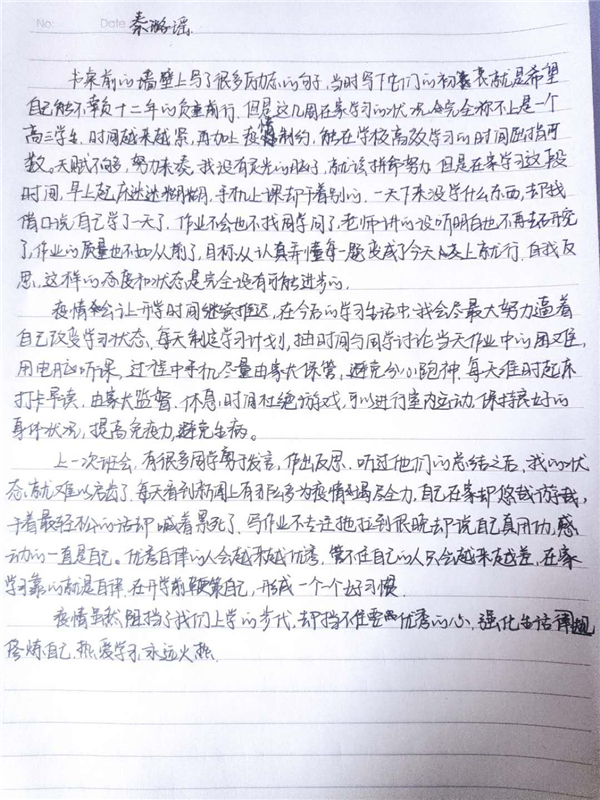 No:
Date
秦璐谣
卡桌前的墙壁上写了很多励志的句子,当时写下它们的初衷就是希望
自己能不辜负十二年的负重前行。但是这几周在家学习的状况,完全称不上是一个
高三学生,时间越来越紧,再加上疫情制约,能在学校高效学习的时间屈指可
数。天赋不够,努力来凑,我没有灵光的脑子,就该拼命努力,但是在家学习这段
时间,早上起床迷迷糊糊,手机上课却干着别的,一天下来没学什么东西,却找
借口说自己学了一天了,作业不会也不找同学问了,老师讲的没听明白也不再去研究
了,作业的质量也不如从前了,目标从认真弄懂每一题变成了今天交上就行。自我反
思,这样的态度和状态是完全没有可能进步的。
疫情会让开学时间继续推迟,在今后的学习生活中,我会尽最大努力逼着
自己改变学习状态,每天制定学习计划,抽时间与同学讨论当天作业中的困难,
用电脑听课,过程中手机尽量由家大保管,避免分心跑神,每天准时起床
打卡早读,由家大监督,休息时间杜绝游戏,可以进行室内运动,保持良好的
身体状况,提高免疫力,避免生病。
上一次班会,有很多同学勇于发言,作出反思,听过他们的总结之后,我的状
态就难以启齿了,每天看到新闻上有那么多为疫情竭尽全力,自己在家却悠哉游哉,
干着最轻松的活却喊着累死了,写作业不专注拖拉到很晚却说自己真用功,感
动的一直是自己。优秀自律的人会越来越优秀,管不住自己的人只会越来越差,在家
学习靠的就是自律,在开学前鞭策自己,形成一个个好习惯。
疫情虽然阻挡了我们上学的步伐,却挡不住要优秀的心,强化生活
磨炼自己,热爱学习,永远火热。